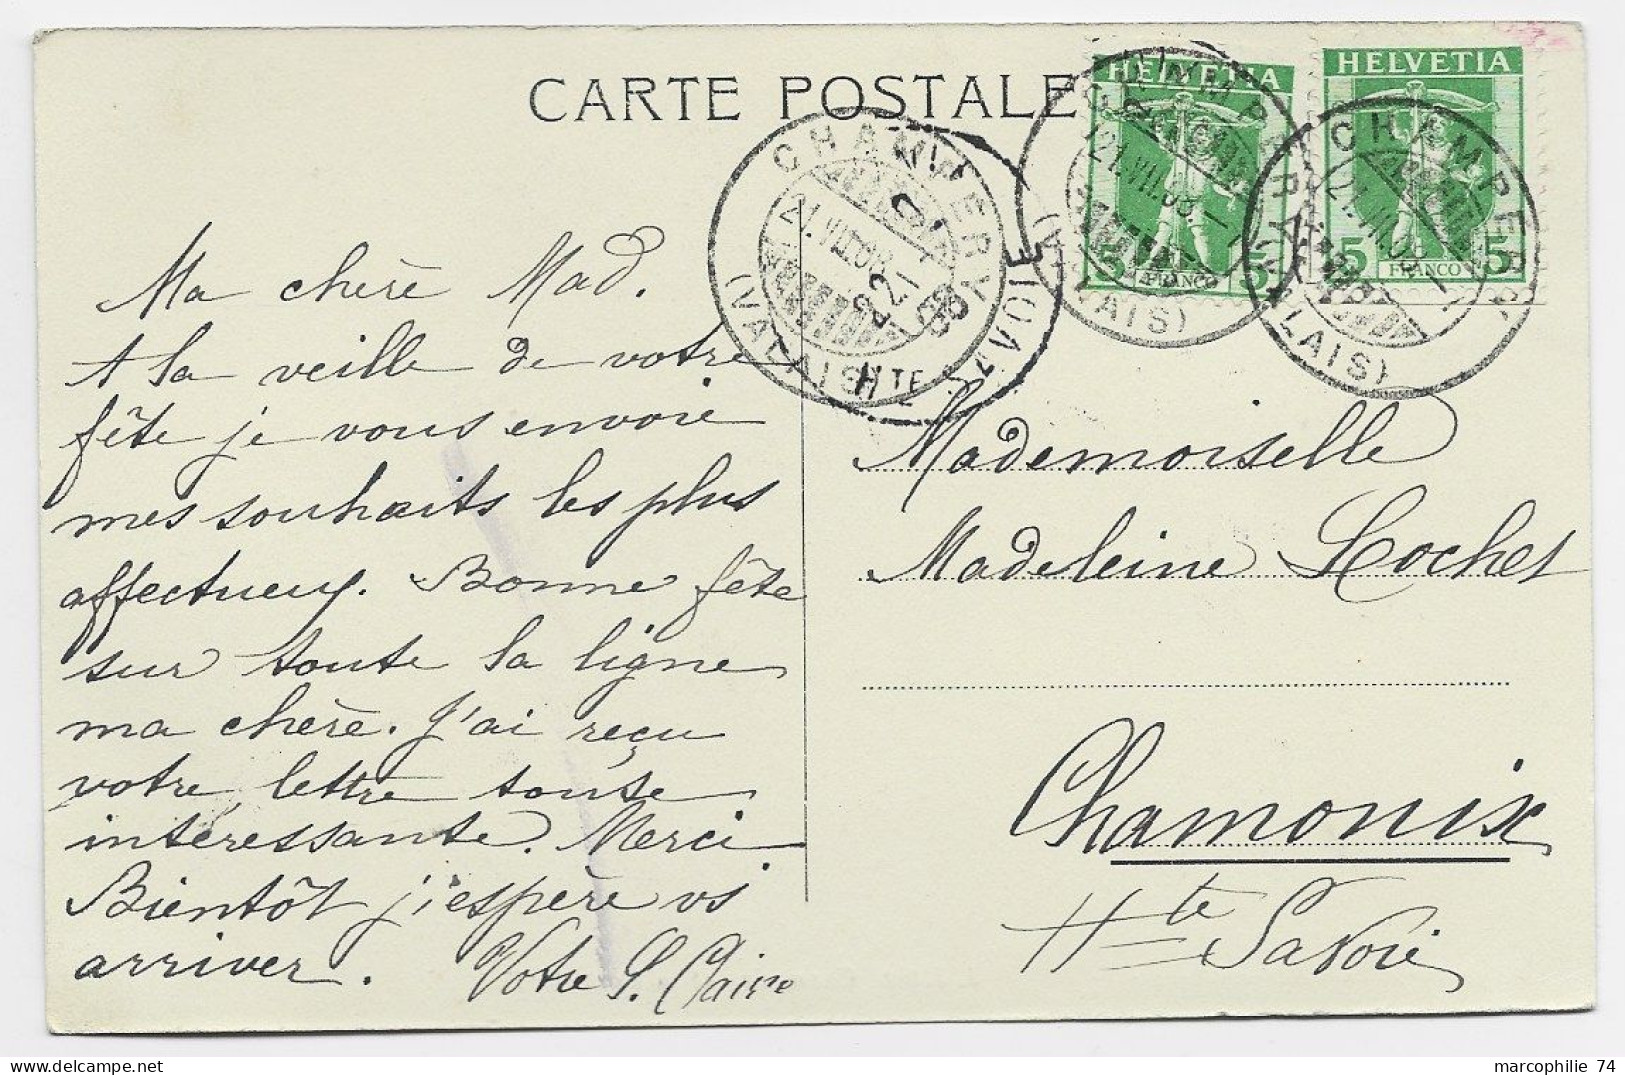 CARTE POSTALE
HELVETIA
HELVETIA
5 FRANCO 5
5 FRANCO 5
CHAMPERY
21.VII.08
(VALAIS)
CHAMPERY
21.VII.08
(VALAIS)
CHAMPERY
21.VII.08
(VALAIS)
22
08
HTE
Ma chère Mad.
A la veille de votre
fête je vous envoie
mes souhaits les plus
affectueux. Bonne fête
sur toute la ligne
ma chère. J'ai reçu
votre lettre toute
intéressante. Merci.
Bientôt j'espère vs
arriver. Votre S. Claire
Mademoiselle
Madeleine Lochet
Chamonix
Hte Savoie
marcophilie 74